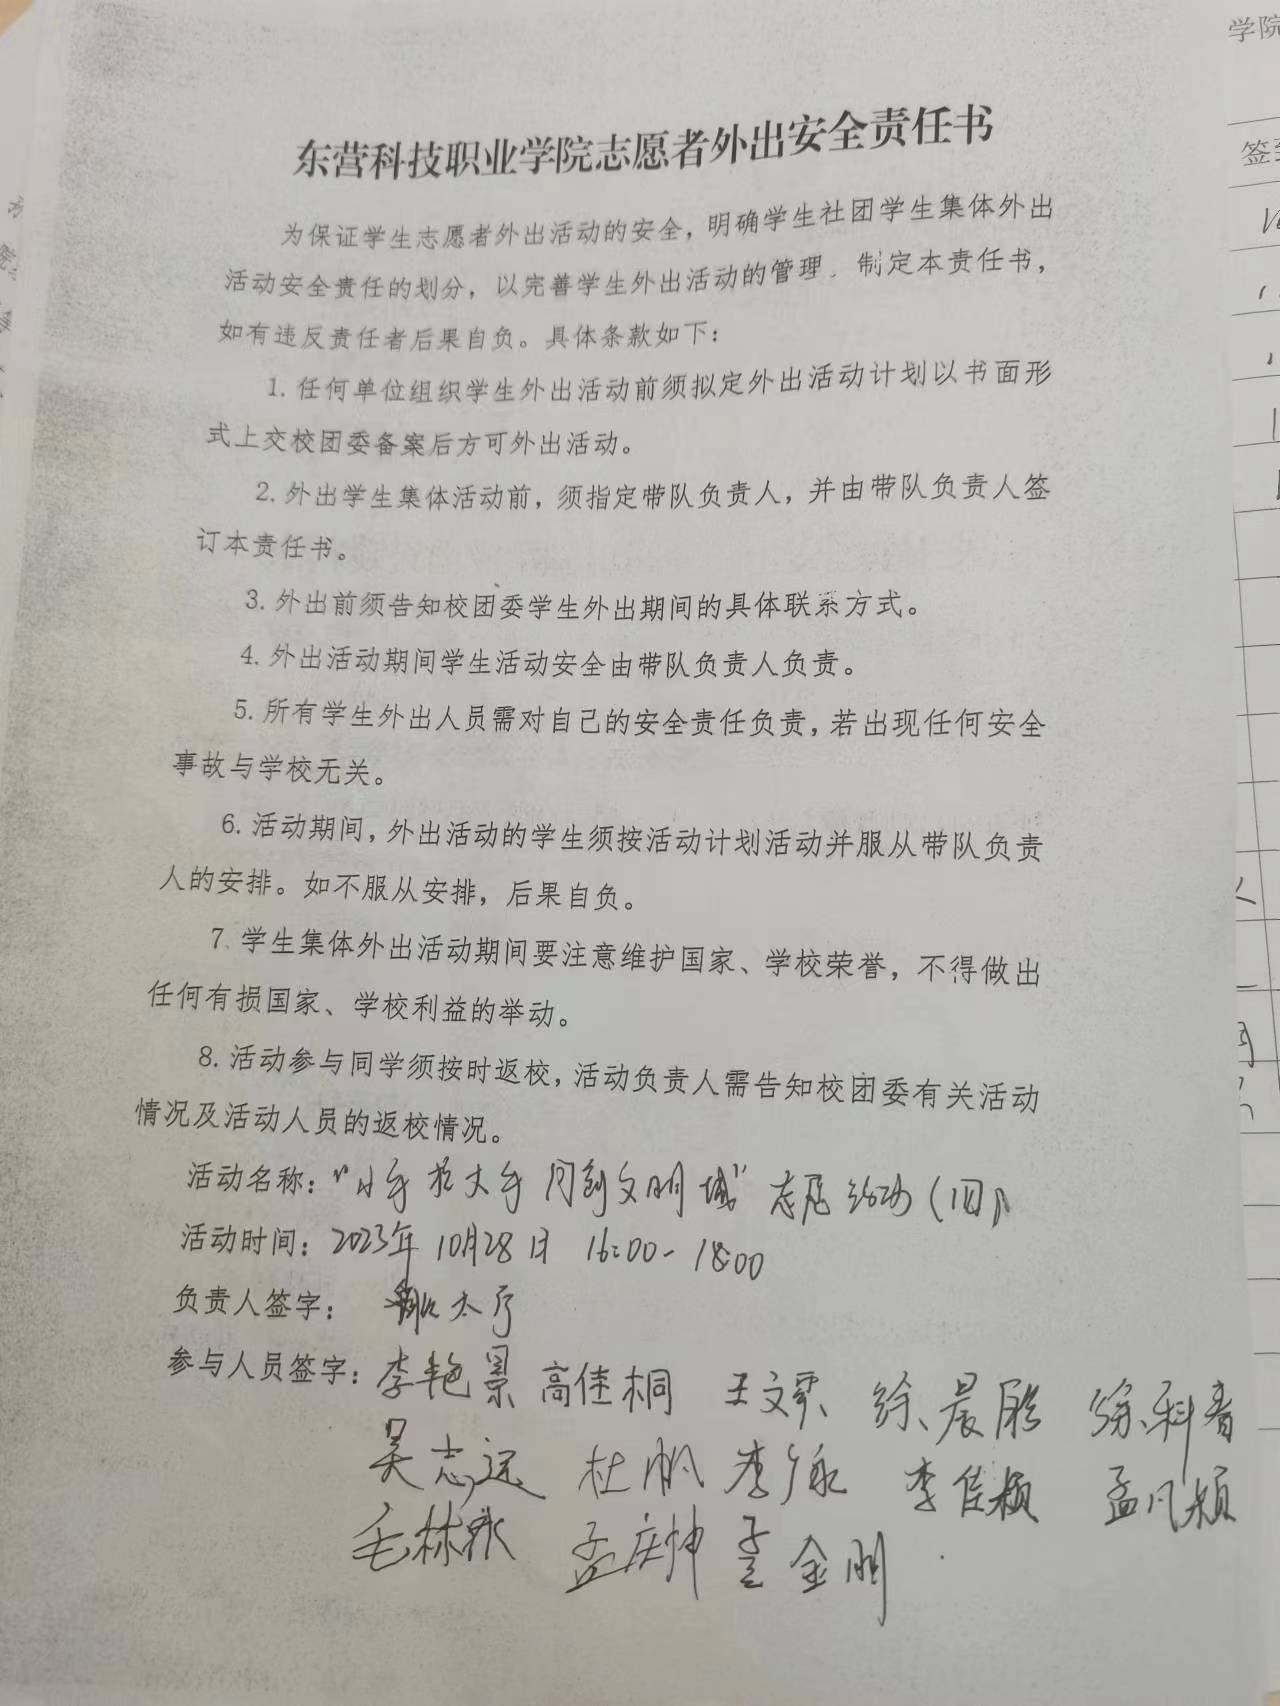 东营科技职业学院志愿者外出安全责任书
为保证学生志愿者外出活动的安全，明确学生社团学生集体外出
活动安全责任的划分，以完善学生外出活动的管理．制定本责任书，
如有违反责任者后果自负。具体条款如下：
1. 任何单位组织学生外出活动前须拟定外出活动计划以书面形
式上交校团委备案后方可外出活动。
2. 外出学生集体活动前，须指定带队负责人，并由带队负责人签
订本责任书。
3. 外出前须告知校团委学生外出期间的具体联系方式。
4. 外出活动期间学生活动安全由带队负责人负责。
5. 所有学生外出人员需对自己的安全责任负责，若出现任何安全
事故与学校无关。
6. 活动期间，外出活动的学生须按活动计划活动并服从带队负责
人的安排。如不服从安排，后果自负。
7. 学生集体外出活动期间要注意维护国家、学校荣誉，不得做出
任何有损国家、学校利益的举动。
8. 活动参与同学须按时返校，活动负责人需告知校团委有关活动
情况及活动人员的返校情况。
活动名称：“小手拉大手 同创文明城” 志愿活动
活动时间：2023年10月28日 16:00-18:00
负责人签字：
参与人员签字：李艳景 高佳桐 王文 徐晨 徐科
吴志远 杜帆 李 李佳颖 孟凡颖
毛林 孟庆坤 孟金明
学院